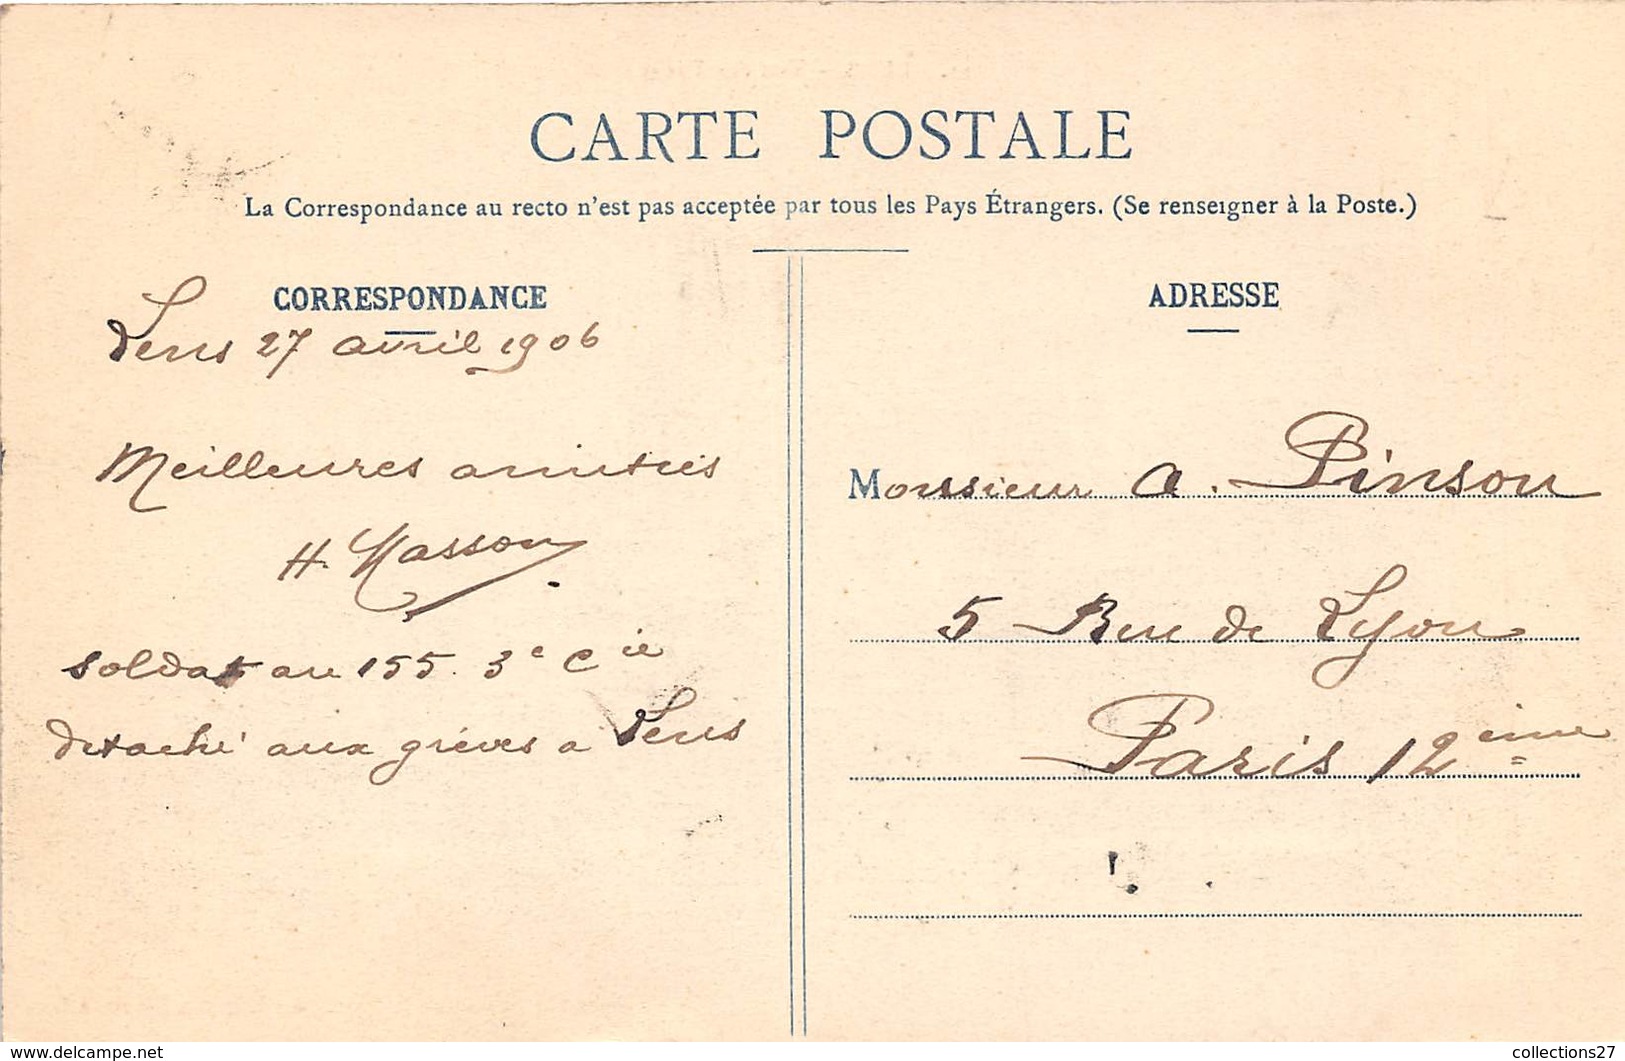 CARTE POSTALE
La Correspondance au recto n'est pas acceptée par tous les Pays Étrangers. (Se renseigner à la Poste.)
CORRESPONDANCE
Lens 27 avril 1906
Meilleures amitiés
H. Masson
soldat au 155. 3e Cie
détaché aux grèves a Lens
ADRESSE
Monsieur A. Pinson
5 Rue de Lyon
Paris 12ème
www.delcampe.net
collections27